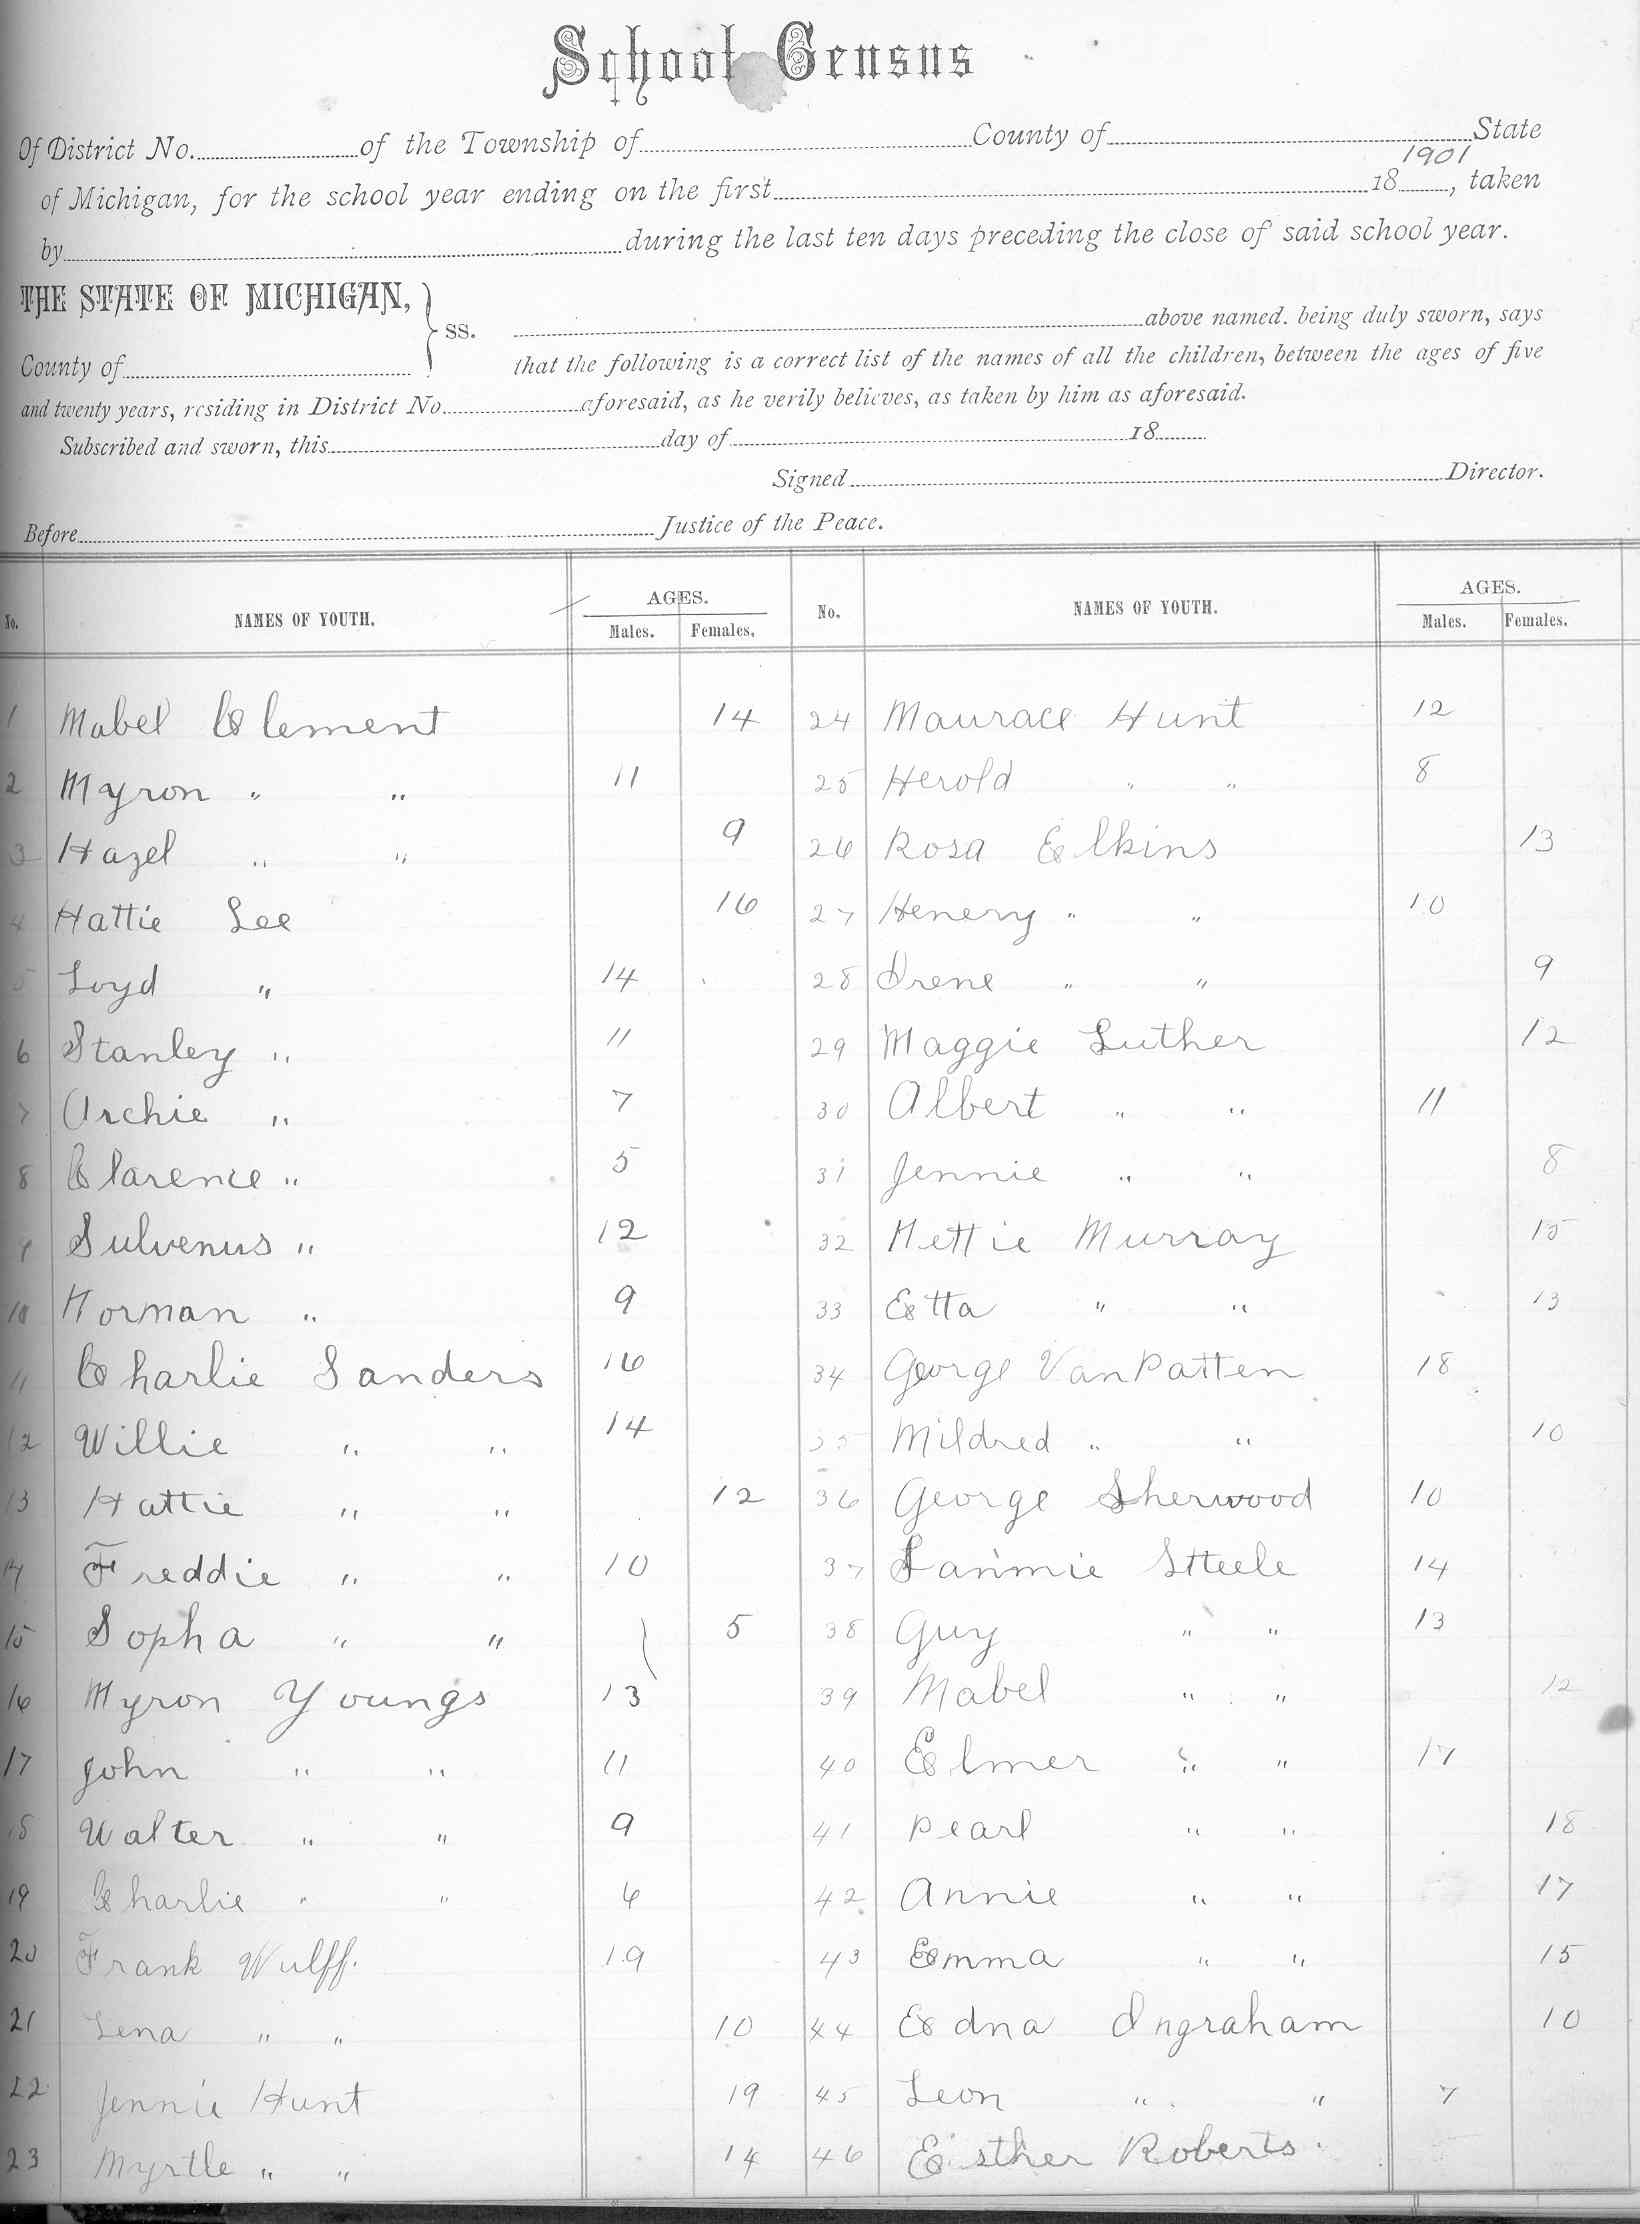 School Census
Of District No. of the Township of County of State
1901
of Michigan, for the school year ending on the first 18 , taken
by during the last ten days preceding the close of said school year.
THE STATE OF MICHIGAN, } ss. above named. being duly sworn, says
County of that the following is a correct list of the names of all the children, between the ages of five
and twenty years, residing in District No. aforesaid, as he verily believes, as taken by him as aforesaid.
Subscribed and sworn, this day of 18
Signed Director.
Before Justice of the Peace.
No. NAMES OF YOUTH. AGES. Males. Females.
No. NAMES OF YOUTH. AGES. Males. Females.
1 Mabel Clement 14
2 Myron " " 11
3 Hazel " " 9
4 Hattie Lee 16
5 Loyd " 14
6 Stanley " 11
7 Archie " 7
8 Clarence " 5
9 Sulvenus " 12
10 Norman " 9
11 Charlie Sanders 16
12 Willie " " 14
13 Hattie " " 12
14 Freddie " " 10
15 Sopha " " 5
16 Myron Youngs 13
17 John " " 11
18 Walter " " 9
19 Charlie " " 6
20 Frank Wulff. 19
21 Lena " " 10
22 Jennie Hunt 19
23 Myrtle " " 14
24 Maurace Hunt 12
25 Herold " " 8
26 Rosa Elkins 13
27 Henery " " 10
28 Irene " " 9
29 Maggie Luther 12
30 Albert " " 11
31 Jennie " " 8
32 Nettie Murray 15
33 Etta " " 13
34 George VanPatten 18
35 Mildred " " 10
36 George Sherwood 10
37 Steele 14
38 Guy " " 13
39 Mabel " " 12
40 Elmer " " 17
41 Pearl " " 18
42 Annie " " 17
43 Emma " " 15
44 Edna Ingraham 10
45 Leon " " 7
46 Esther Roberts.